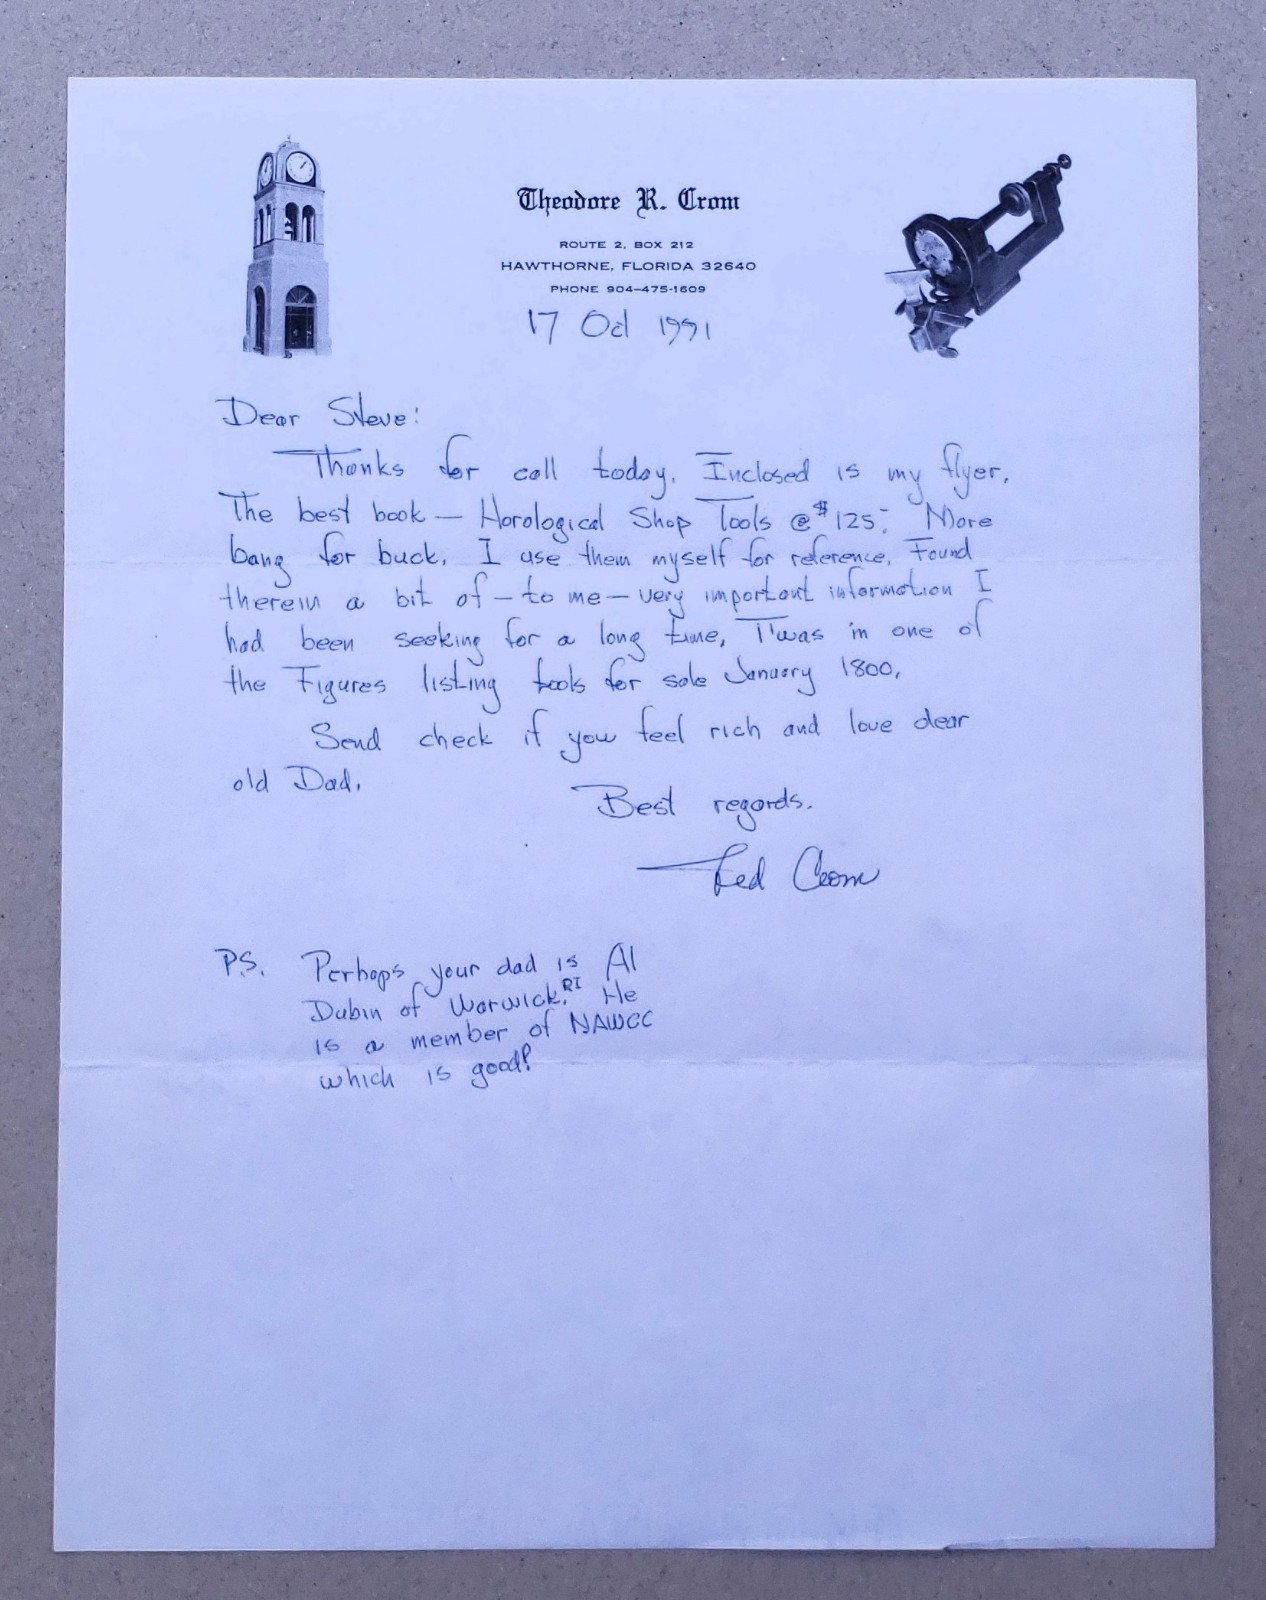 Theodore R. Crom
ROUTE 2, BOX 212
HAWTHORNE, FLORIDA 32640
PHONE 904-475-1609
17 Oct 1991
Dear Steve:
Thanks for call today. Inclosed is my flyer.
The best book — Horological Shop Tools @ $125- More
bang for buck. I use them myself for reference. Found
therein a bit of - to me - very important information I
had been seeking for a long time, T'was in one of
the Figures listing tools for sale January 1800.
Send check if you feel rich and love dear
old Dad.
Best regards.
Ted Crom
P.S. Perhaps your dad is Al
Dubin of Warwick, RI He
is a member of NAWCC
which is good!